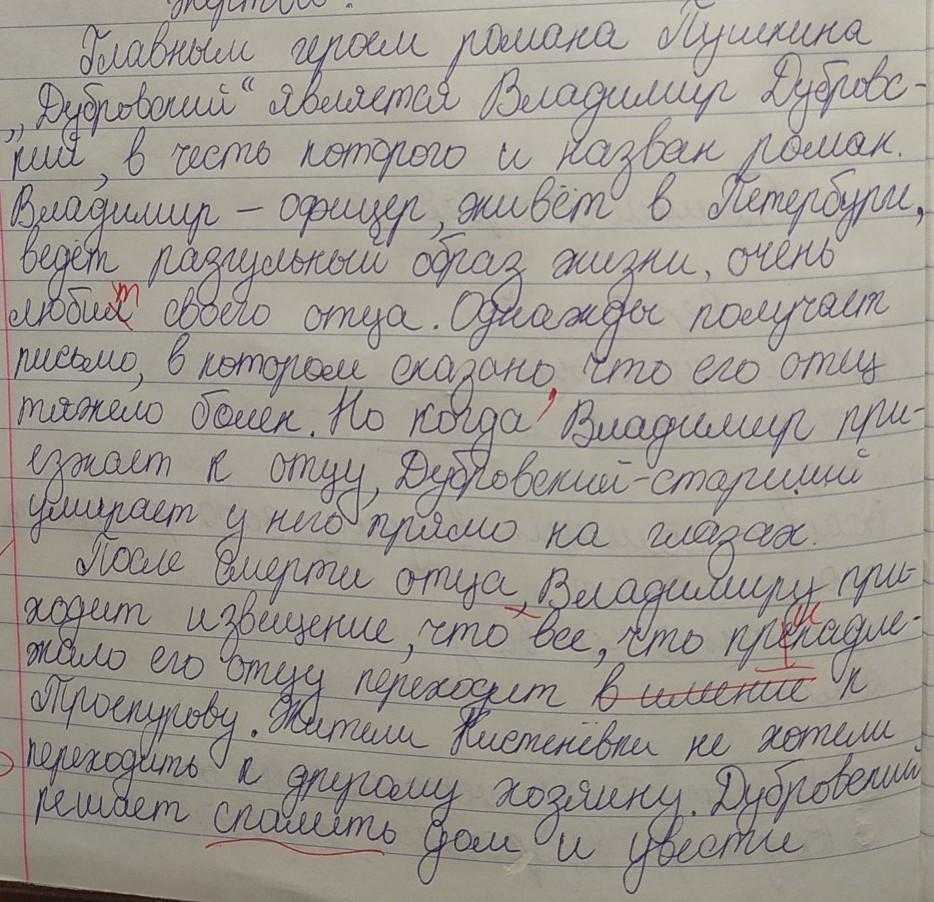 Главным героем романа Пушкина
„Дубровский“ является Владимир Дубровс-
кий, в честь которого и назван роман.
Владимир – офицер, живёт в Петербурги,
ведёт разгульный образ жизни, очень
любит своего отца. Однажды получает
письмо, в котором сказано, что его отец
тяжело болен. Но когда Владимир при-
езжает к отцу, Дубровский-старший
умирает у него прямо на глазах.
После смерти отца, Владимиру при-
ходит извещение, что все, что принадле-
жало его отцу переходит в имение к
Троекурову. Жители Кистенёвки не хотели
переходить к другому хозяину. Дубровский
решает спалить дом и увести